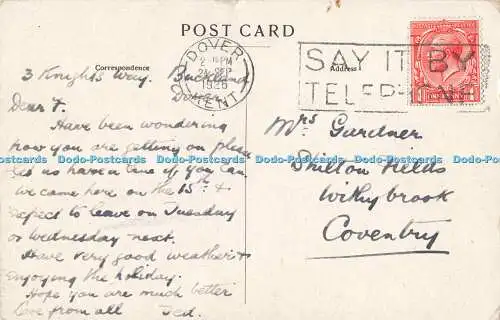 POST CARD
Correspondence
Address
DOVER
2 PM
SEP
1926
KENT
SAY IT BY
TELEPHONE
3 Knights Way. Buckland
Dover
Dear F.
Have been wondering
how you are getting on please
let us have a line if you can.
We came here on the 15th &
expect to leave on Tuesday
or Wednesday next.
Have very good weather &
enjoying the holiday.
Hope you are much better
Love from all Ted.
Mrs Gardner
Shilton Fields
Withybrook
Coventry
Dodo-Postcards Dodo-Postcards Dodo-Postcards Dodo-Postcards Dodo-Postcards